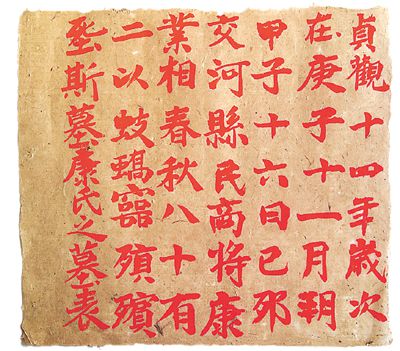 貞觀十四年歲次
在庚子十一月朝
甲子十六日已邜
交河縣民商将康
業相春秋八十有
二以蚑蝺靈殞殯
斯墓康氏之墓表